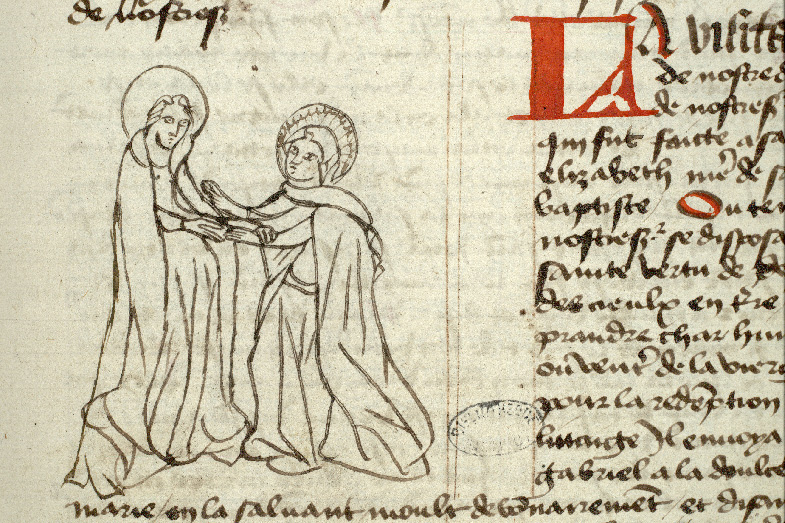 de nostres.
La visita
de nostred
de nostres
qui fut faitte a sa
elizabeth me de s
baptiste On ter
nostres. se disposa
sainte vertu de
des cieulx en tre
prandre char hu
ou vent de la vier
pour la redeption
lumaige Il envoya
gabriel a la doulce
marie en la saluant moult debonnairemet et disa